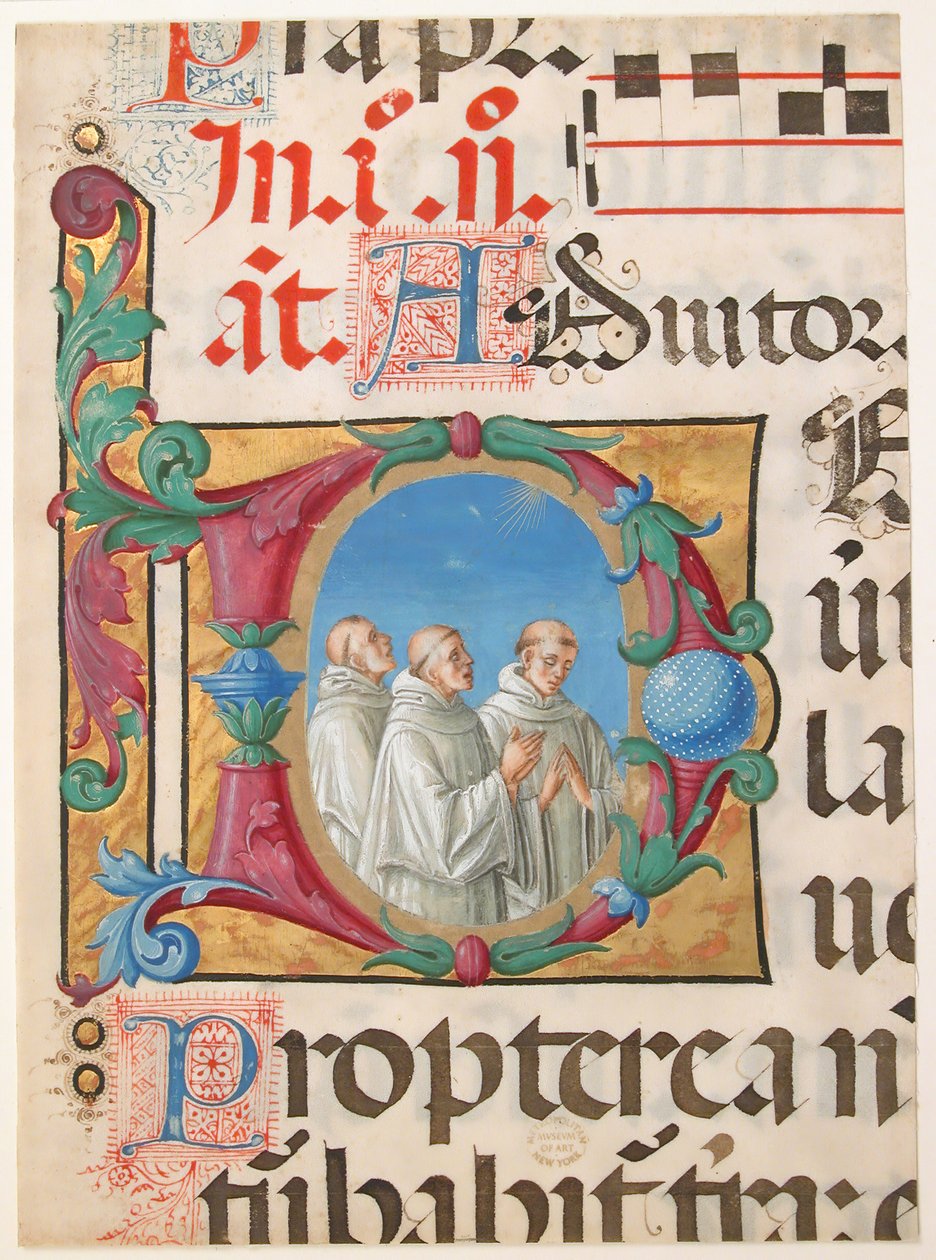 In.i° .n°.
āt. Adiutor
DE
la
Propterea n
tūbabit̄ t̄ra: e
METROPOLITAN
MUSEUM
OF ART
NEW YORK